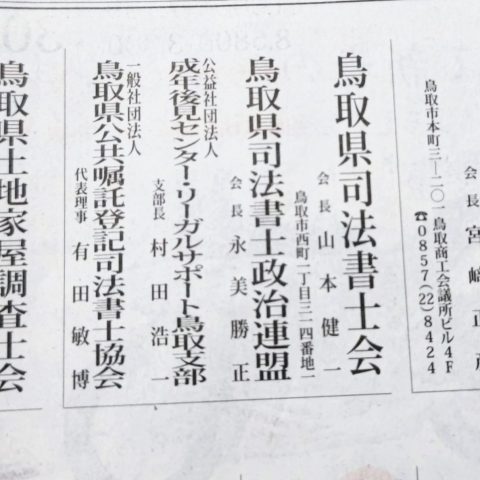 宮﨑正彦
鳥取市本町三ー二〇一 鳥取商工会議所ビル4F
☎0857(22)8424
鳥取県司法書士会
会長 山本健一
鳥取市西町一丁目三一四番地一
鳥取県司法書士政治連盟
会長 永美勝正
公益社団法人
成年後見センター・リーガルサポート鳥取支部
支部長 村田浩一
一般社団法人
鳥取県公共嘱託登記司法書士協会
代表理事 有田敏博
鳥取県土地家屋調査士会